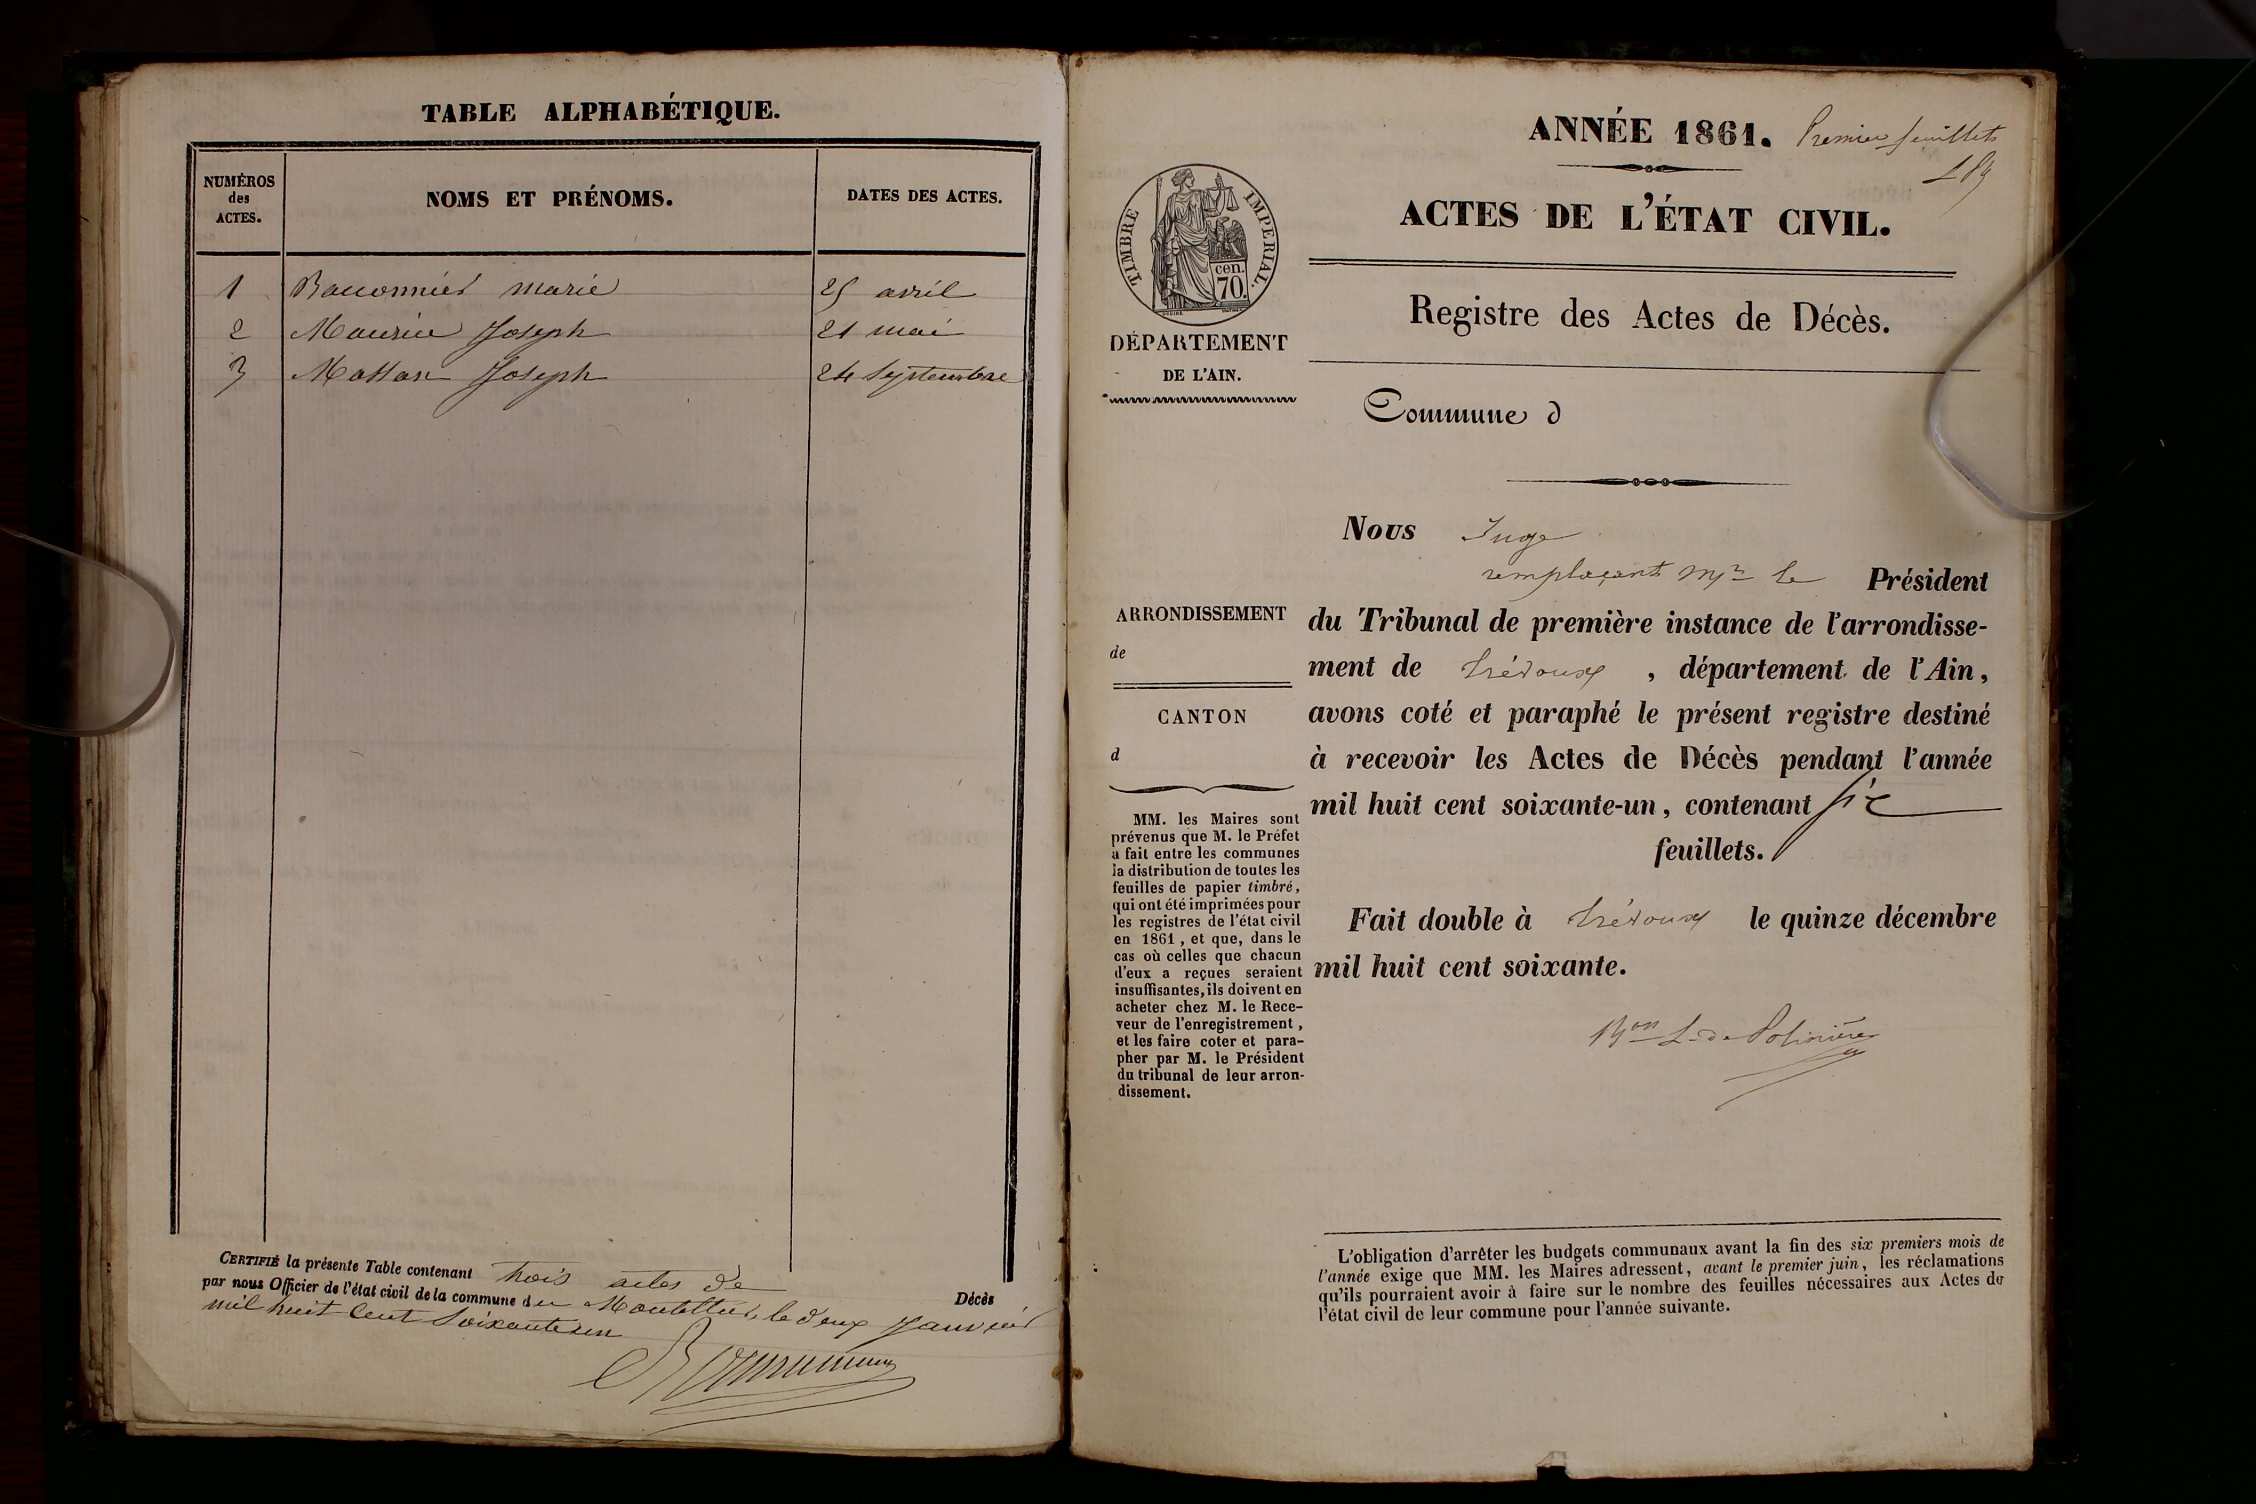 TABLE ALPHABÉTIQUE.
NUMÉROS des ACTES.
NOMS ET PRÉNOMS.
DATES DES ACTES.
1 Bacconnier marie 25 avril
2 Maurice Joseph 21 mai
3 Joseph 24 Septembre
CERTIFIÉ la présente Table contenant trois actes de Décès
par nous Officier de l'état civil de la commune du Montellier, le deux Janvier
mil huit Cent Soixante un
ANNÉE 1861. Premier feuillet
ACTES DE L'ÉTAT CIVIL.
TIMBRE IMPERIAL.
cen.
70.
Registre des Actes de Décès.
DÉPARTEMENT
DE L'AIN.
Commune d
Nous Juge
remplaçant Mr le Président
du Tribunal de première instance de l'arrondisse-
ment de trévoux, département de l'Ain,
avons coté et paraphé le présent registre destiné
à recevoir les Actes de Décès pendant l'année
mil huit cent soixante-un, contenant six
feuillets.
Fait double à trévoux le quinze décembre
mil huit cent soixante.
Bon L. de Polinière
ARRONDISSEMENT
de
CANTON
d
MM. les Maires sont
prévenus que M. le Préfet
a fait entre les communes
la distribution de toutes les
feuilles de papier timbré,
qui ont été imprimées pour
les registres de l'état civil
en 1861, et que, dans le
cas où celles que chacun
d'eux a reçues seraient
insuffisantes, ils doivent en
acheter chez M. le Rece-
veur de l'enregistrement,
et les faire coter et para-
pher par M. le Président
du tribunal de leur arron-
dissement.
L'obligation d'arrêter les budgets communaux avant la fin des six premiers mois de
l'année exige que MM. les Maires adressent, avant le premier juin, les réclamations
qu'ils pourraient avoir à faire sur le nombre des feuilles nécessaires aux Actes de
l'état civil de leur commune pour l'année suivante.